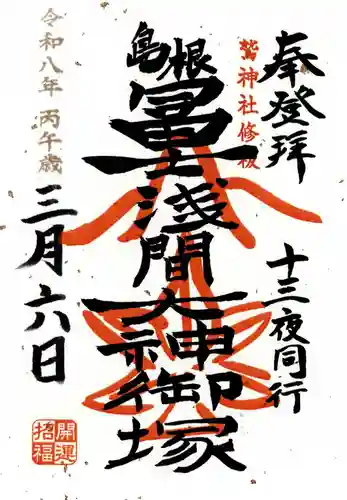 奉登拝
十三夜同行
鷲神社修祓
島根
冨士浅間大神御塚
令和八年 丙午歳
三月六日
開運
招福